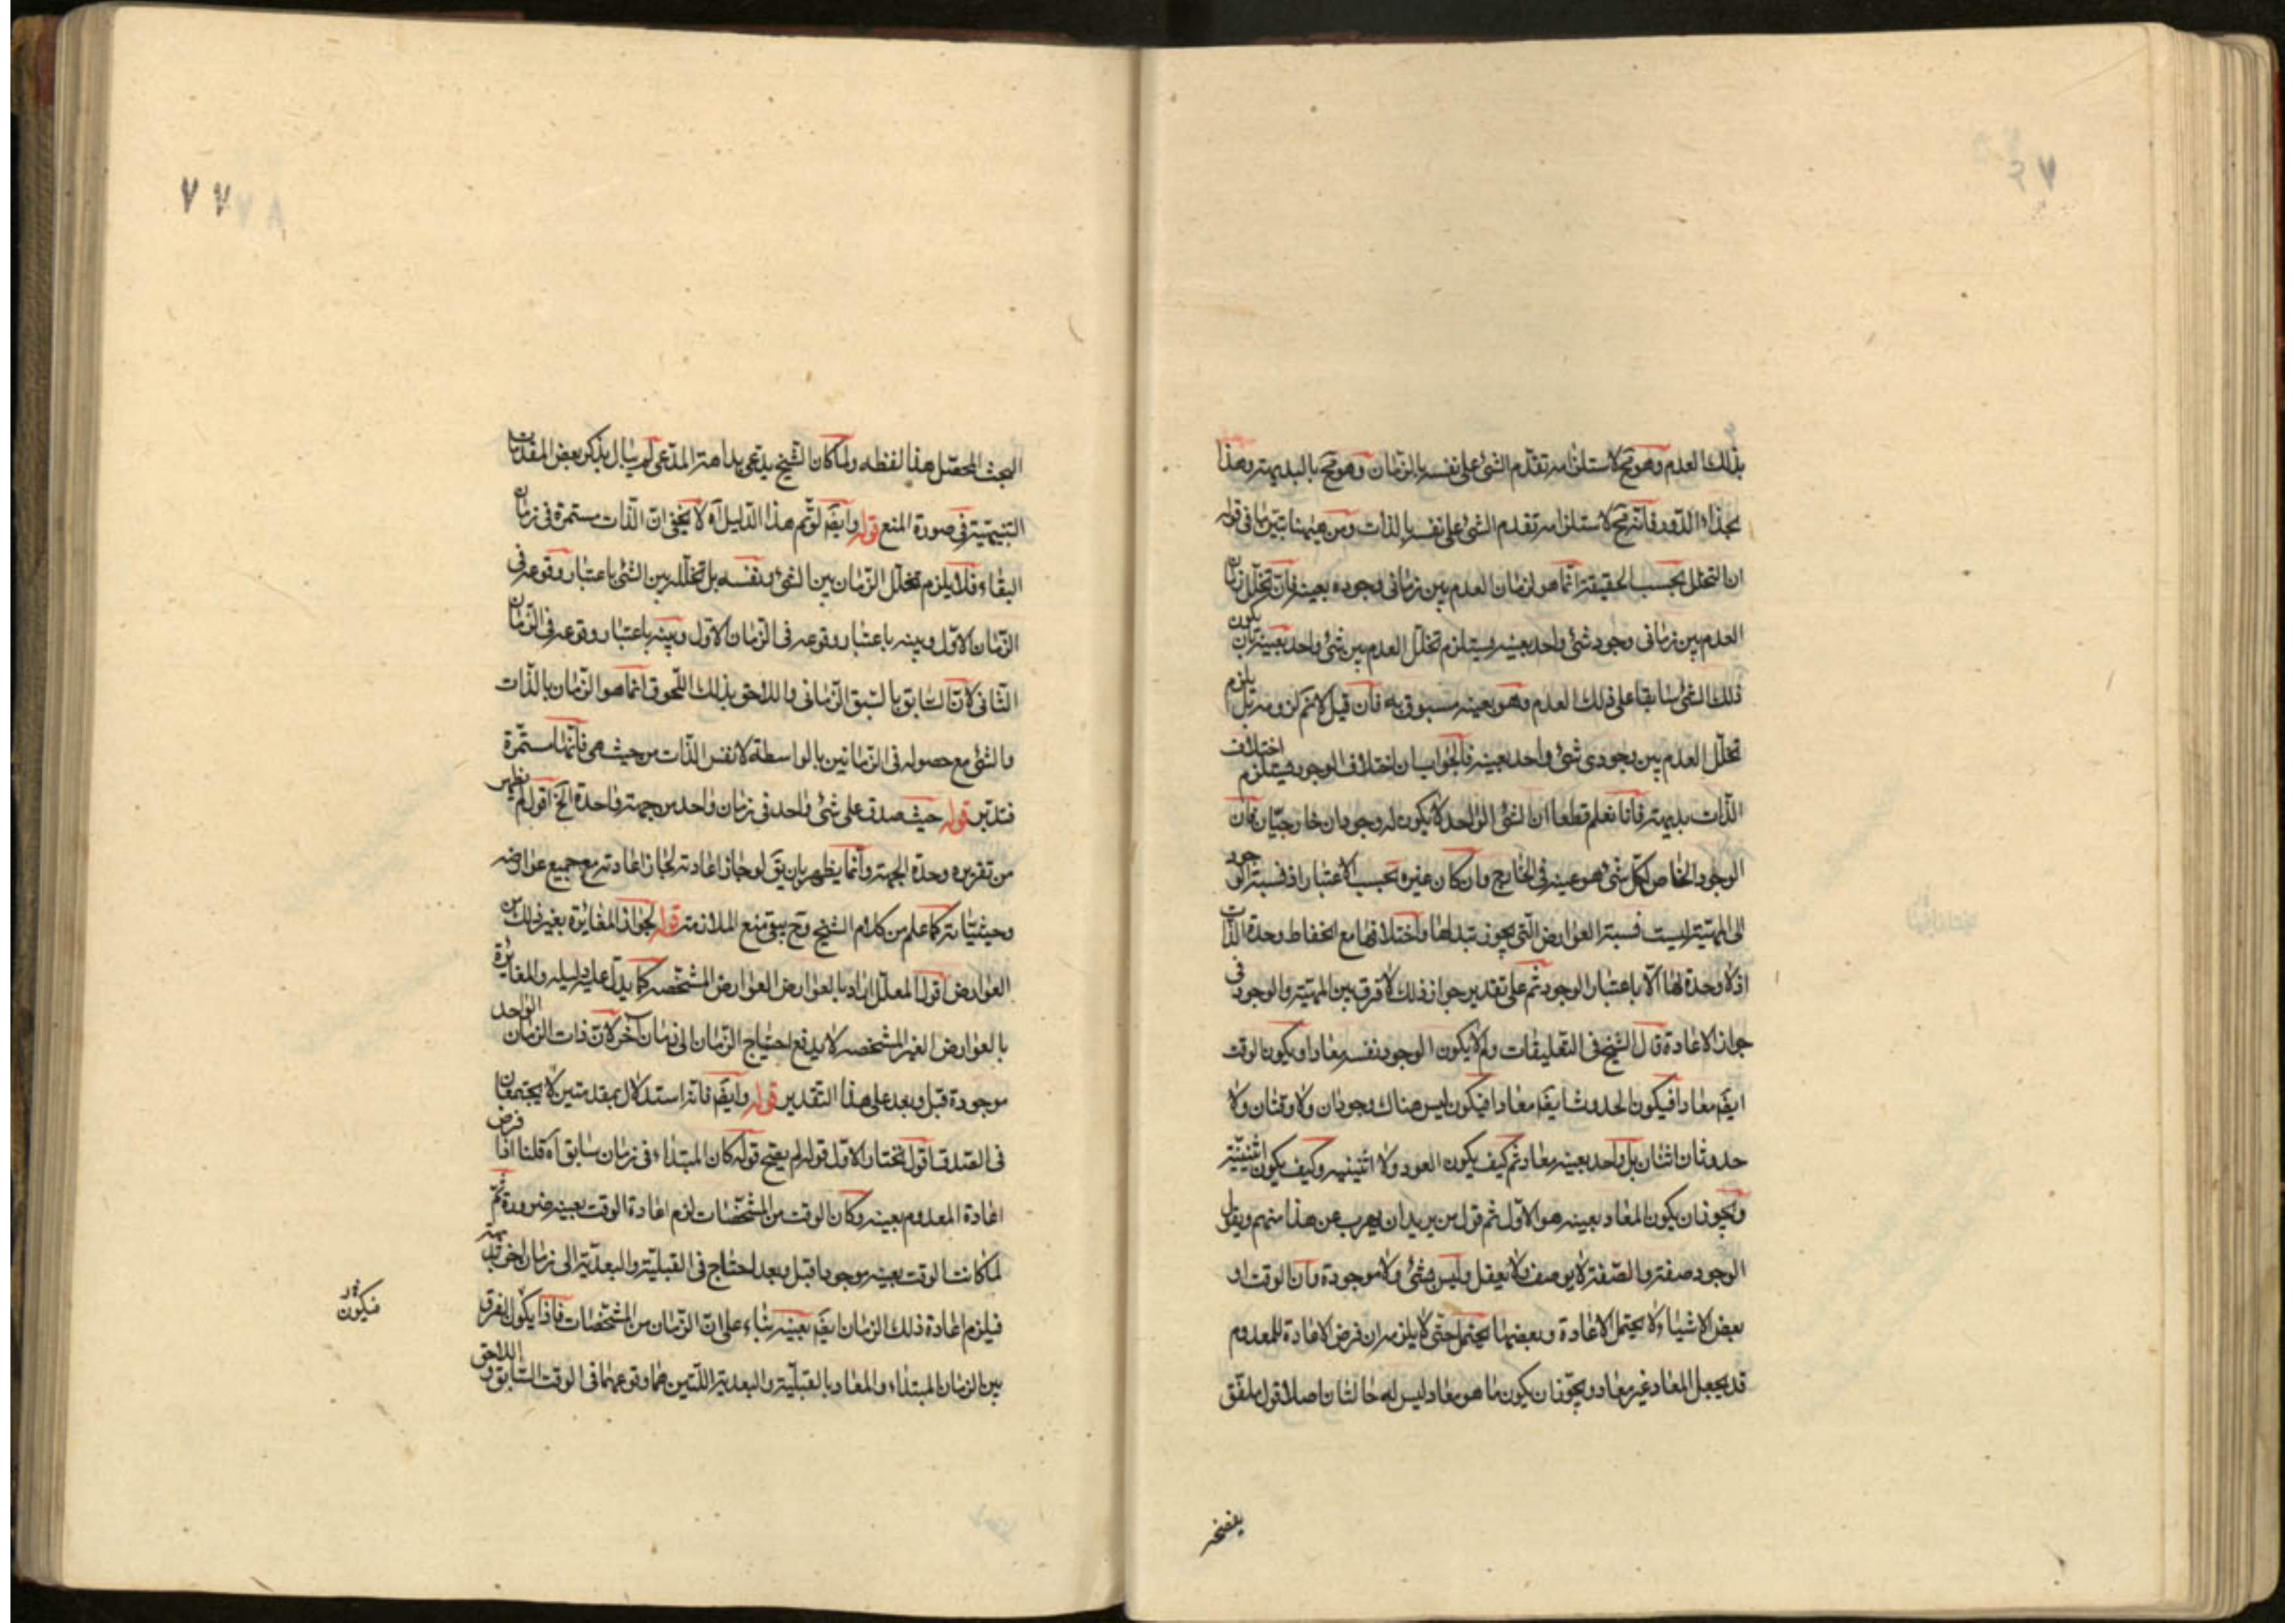 بذلك العدم وهو مح لاستلزامه تقدم الشئ على نفسه بالزمان وهو مح بالبديهة وهذا
بحذاء الدور فانه مح لاستلزامه تقدم الشئ على نفسه بالذات ومن ههنا تبين ما فى قوله
ان التخلل بحسب الحقيقة انما هو لزمان العدم بين زمانى وجوده بعينه فان تخلل زمان
العدم بين زمانى وجود شئ واحد بعينه يستلزم تخلل العدم بين شئ واحد بعينه بان يكون
ذلك الشئ سابقا على ذلك العدم وهو بعينه مسبوق به فان قيل لانم لزومه بل يلزم
تخلل العدم بين وجودى شئ واحد بعينه فالجواب ان اختلاف الوجود يستلزم اختلاف
الذات بديهة فانا نعلم قطعا ان الشئ الواحد لا يكون له وجودان خارجيان فان
الوجود الخاص لكل شئ هو عينه فى الخارج وان كان غيره بحسب الاعتبار اذ نسبة الوجود
الى المهية ليست نسبة العوارض التى يجوز تبدلها واختلافها مع انحفاظ وحدة الذات
اذ لا وحدة لها الا باعتبار الوجود ثم على تقدير جواز ذلك لا فرق بين المهية والوجود فى
جواز الاعادة قال الشيخ فى التعليقات ولم لا يكون الوجود نفسه معادا ويكون الوقت
ايضم معادا فيكون الحدوث ايضم معادا فيكون ليس هناك وجودان ولا وقتان ولا
حدوثان اثنان بل واحد بعينه معاد ثم كيف يكون العود ولا اثنينية وكيف يكون اثنينية
ويجوز ان يكون المعاد بعينه هو الاول ثم قول من يريد ان يهرب عن هذا منهم ويقول
الوجود صفة والصفة لا يوصف ولا يعقل وليس بشئ ولا موجودة وان الوقت او
بعض الاشياء لا يحتمل الاعادة وبعضها يحتمل حتى لا يلزمه ان فرض الاعادة للمعدوم
قد يجعل المعاد غير معاد ويجوز ان يكون ما هو معاد ليس له حالتان اصلا قول ملفق
يفضحه
٧٧
البحث المحصل هذا لفظه ولما كان الشيخ يدعى بداهة المدعى لم يبال بذكر بعض المقدمات
التنبيهية فى صورة المنع قوله وايضم لو تم هذا الدليل آه لا يخفى ان الذات مستمرة فى زمان
البقاء فلا يلزم تخلل الزمان بين الشئ ونفسه بل تخلله بين الشئ باعتبار وقوعه فى
الزمان الاول وبينه باعتبار وقوعه فى الزمان الاول وبينه باعتبار وقوعه فى الزمان
الثانى لان السابق بالسبق الزمانى واللاحق بذلك اللحوق انما هو الزمان بالذات
والشئ مع حصوله فى الزمانين بالواسطة لا نفس الذات من حيث هى فانها مستمرة
فتدبر قوله حيث صدق على شئ واحد فى زمان واحد من جهة واحدة الخ اقول لم يظهر
من تقريره وحدة الجهة وانما يظهر بان يق لو جاز اعادته لجاز اعادته مع جميع عوارضه
وحيثياته كما علم من كلام الشيخ وح يبقى منع الملازمة قوله لجواز المغايرة بغير ذلك من
العوارض اقول المعلل اراد بالعوارض العوارض المشخصه كما يدل عليه دليله والمغايرة
بالعوارض الغير المشخصه لا يدفع احتياج الزمان الى زمان آخر لان ذات الزمان الواحد
موجودة قبل وبعد على هذا التقدير قوله وايضم فانه استدلال بمقدمتين لا يجتمعان
فى الصدق اقول نختار الاول قوله لم يصح قوله كان المبتداء فى زمان سابق آه قلنا اذا فرض
اعادة المعدوم بعينه وكان الوقت من المشخصات لزم اعادة الوقت بعينه ضرورة ثم
لما كانت الوقت بعينه موجودا قبل وبعد احتاج فى القبلية والبعدية الى زمان آخر
فيلزم اعادة ذلك الزمان ايضم بعينه بناء على ان الزمان من المشخصات فاذا يكون الفرق
بين الزمان المبتداء والمعاد بالقبلية والبعدية اللتين هما وقوعهما فى الوقت السابق واللاحق
فيكون